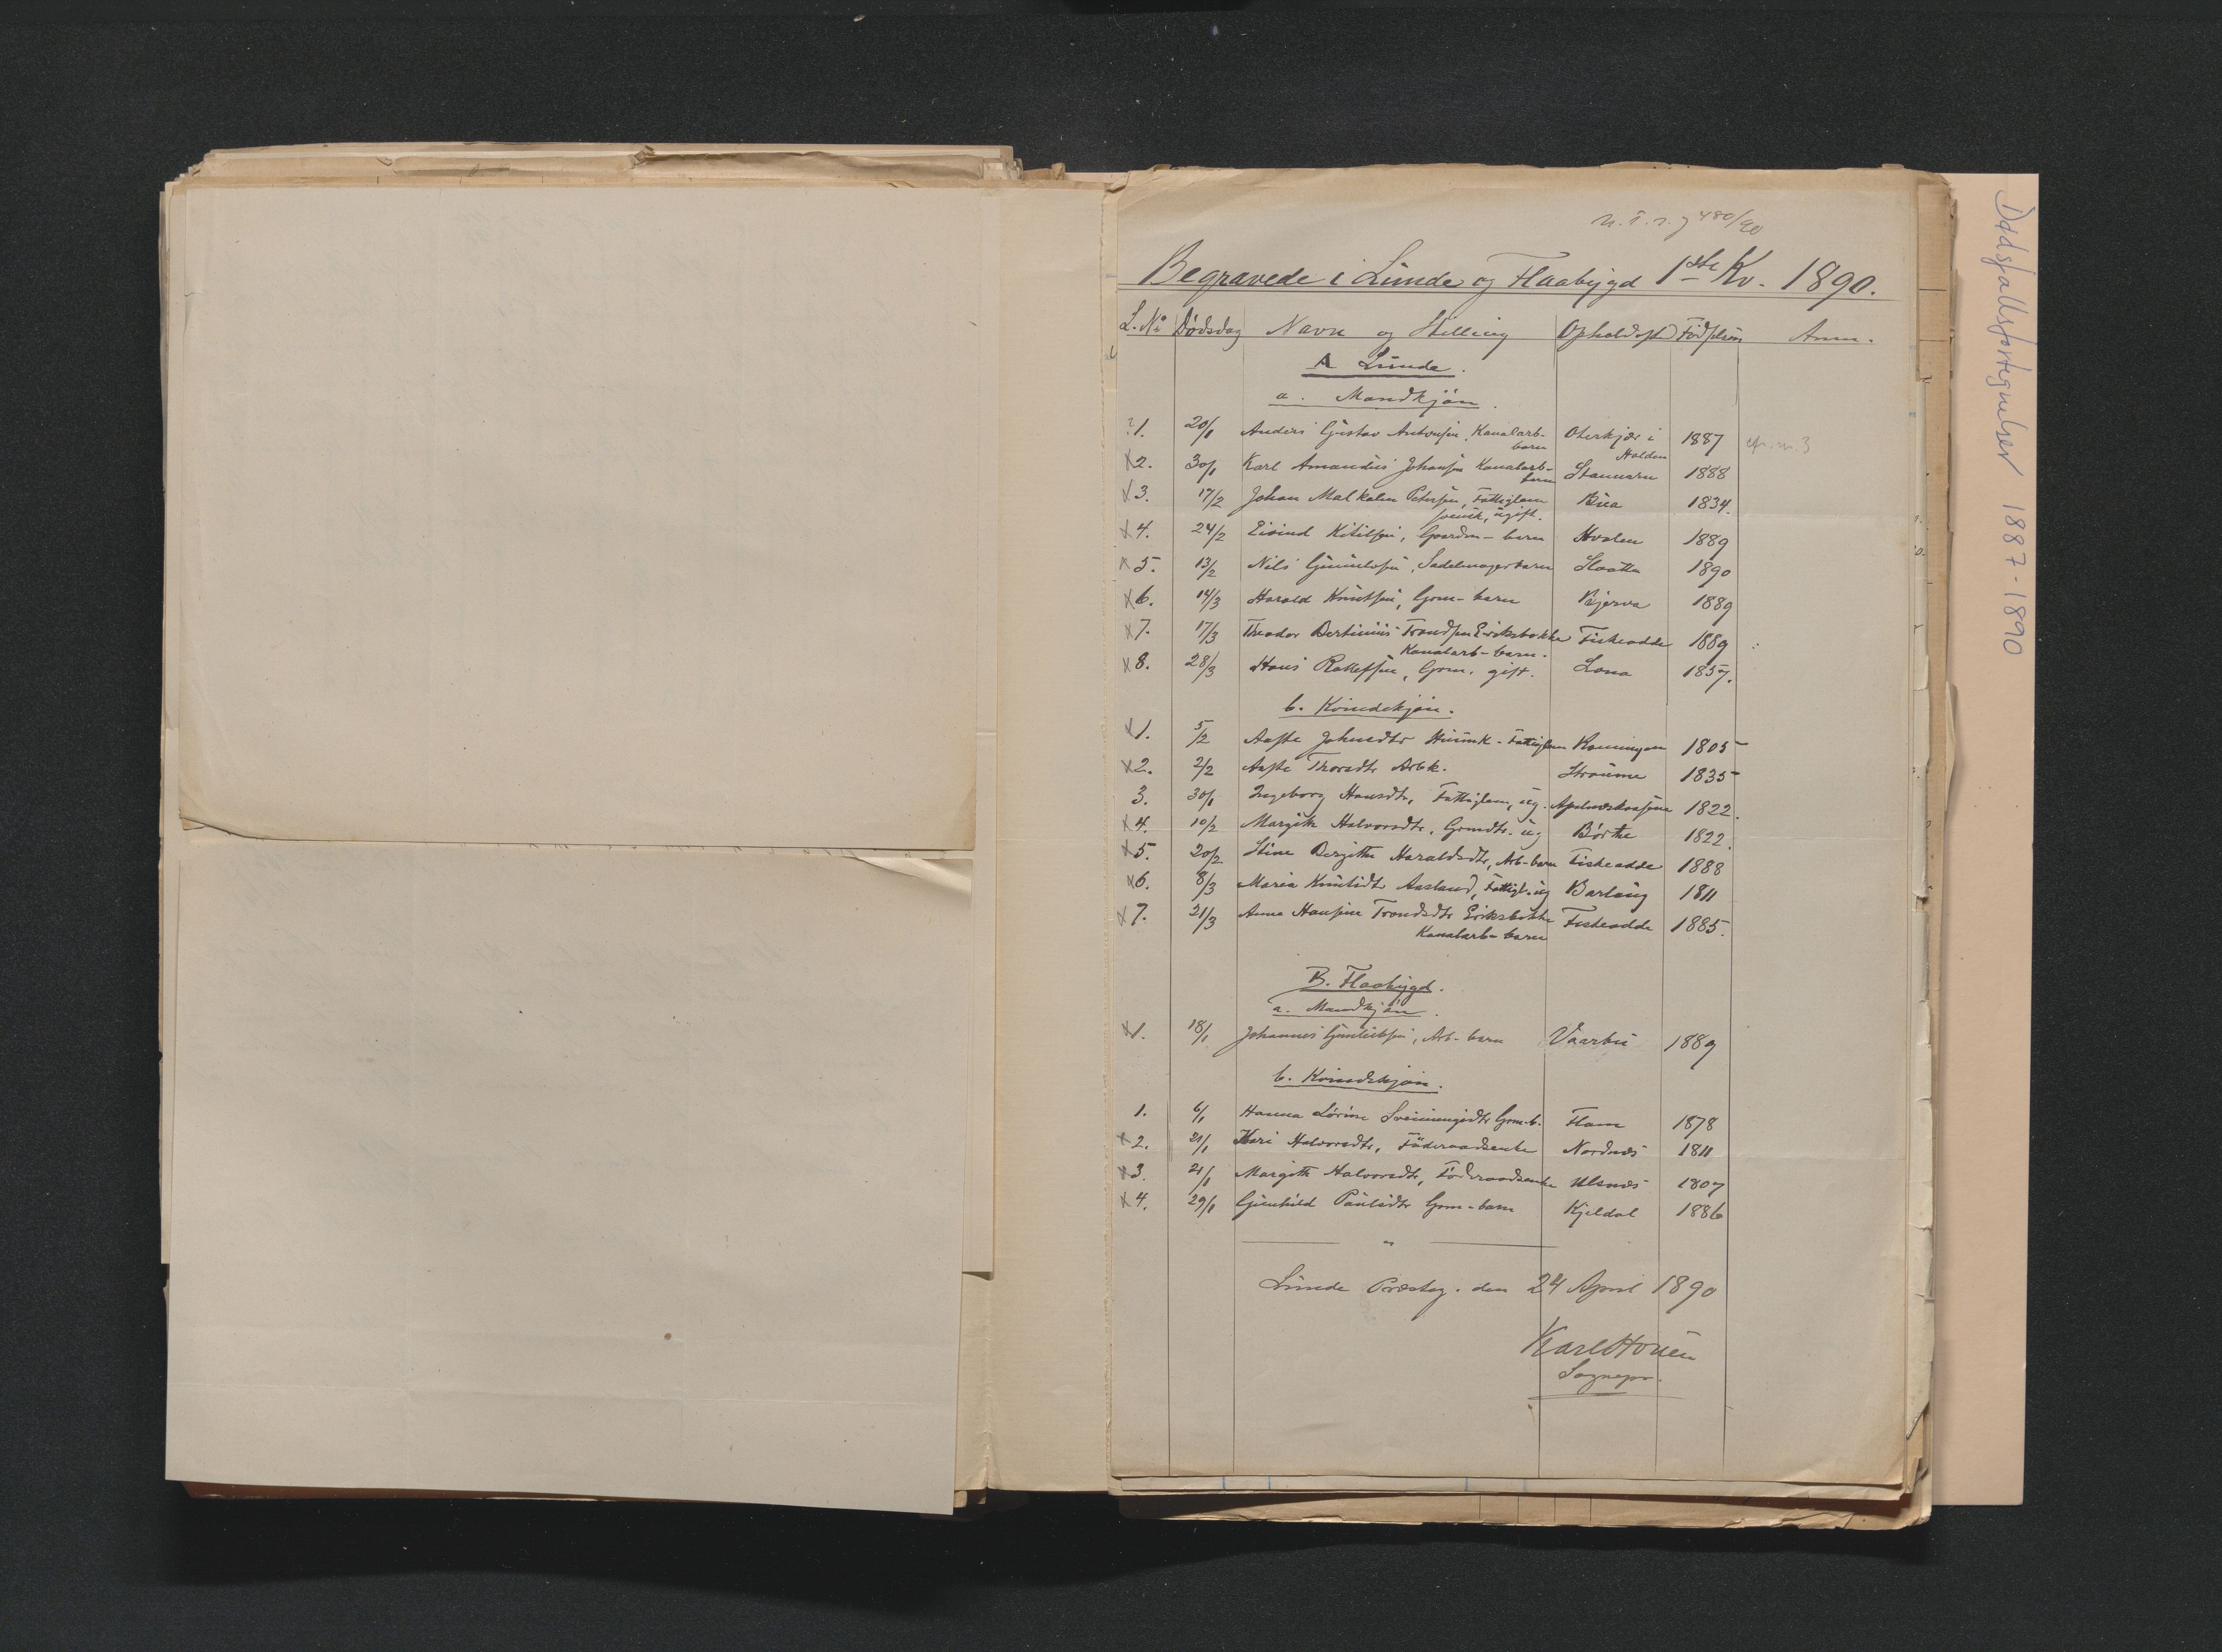 480/90
Begravede i Lunde og Flaabygd 1ste Kv. 1890.
L. No Dødsdag Navn og Stilling Opholdsst. Fødselsaar Anm.
A Lunde.
a. Mandkjön.
1. 20/1 Anders Gustav Antonsen, Kanalarb- Oterkjær i 1887 cfr. nr. 3
barn Holden
X 2. 30/1 Karl Amandus Johansen Kanalarb- Stannarn 1888
barn
X 3. 17/2 Johan Malkolm Petersen, Fattiglem Bua 1834.
svensk, ugift.
X 4. 24/2 Eivind Kitilsen, Gaardm-barn Hvalen 1889
X 5. 13/2 Nils Gunnulvsen, Sadelmagerbarn Slaatta 1890
X 6. 14/3 Harald Knutsen, Grm-barn Bjerva 1889
X 7. 17/3 Theodor Bertinius Trondsen Eriksbakke Fiskeodde 1889
Kanalarb-barn.
X 8. 28/3 Hans Rollefsen, Grm. gift. Lona 1857.
b. Kvindekjön.
X 1. 5/2 Aaste Johnsdtr Huusmk-Fattiglem Romingen 1805
X 2. 2/2 Aaste Thorsdtr Arbk. Straume 1835
3. 30/1 Ingeborg Hansdtr, Fattiglem, ug. 1822.
X 4. 10/2 Margith Halvorsdtr, Grmdtr. ug Börthe 1822.
X 5. 20/2 Stine Bergithe Haraldsdtr, Arb-barn Fiskeodde 1888
X 6. 8/3 Maria Knutsdtr Aasland, Fattigl. ug Barlaug 1811
X 7. 21/3 Anna Hansine Trondsdtr Eriksbakke Fiskeodde 1885.
Kanalarb-barn
B. Flaabygd.
a. Mandkjön.
X 1. 18/1 Johannes Gunleiksen, Arb-barn Vaarbu 1889
b. Kvindekjön.
1. 6/1 Hanna Lovise Sveinungsdtr Grm-b. Flom 1878
X 2. 21/1 Kari Halvorsdtr, Föderaadsenke Nordnes 1811
X 3. 21/1 Margith Halvorsdtr, Föderaadsenke Ulsnes 1807
X 4. 29/1 Gunhild Paulsdtr Grm-barn Kjeldal 1886
Lunde Præsteg. den 24 April 1890
Karl Houen
Sognepr.
Dødsfallsfortegnelser 1887-1890